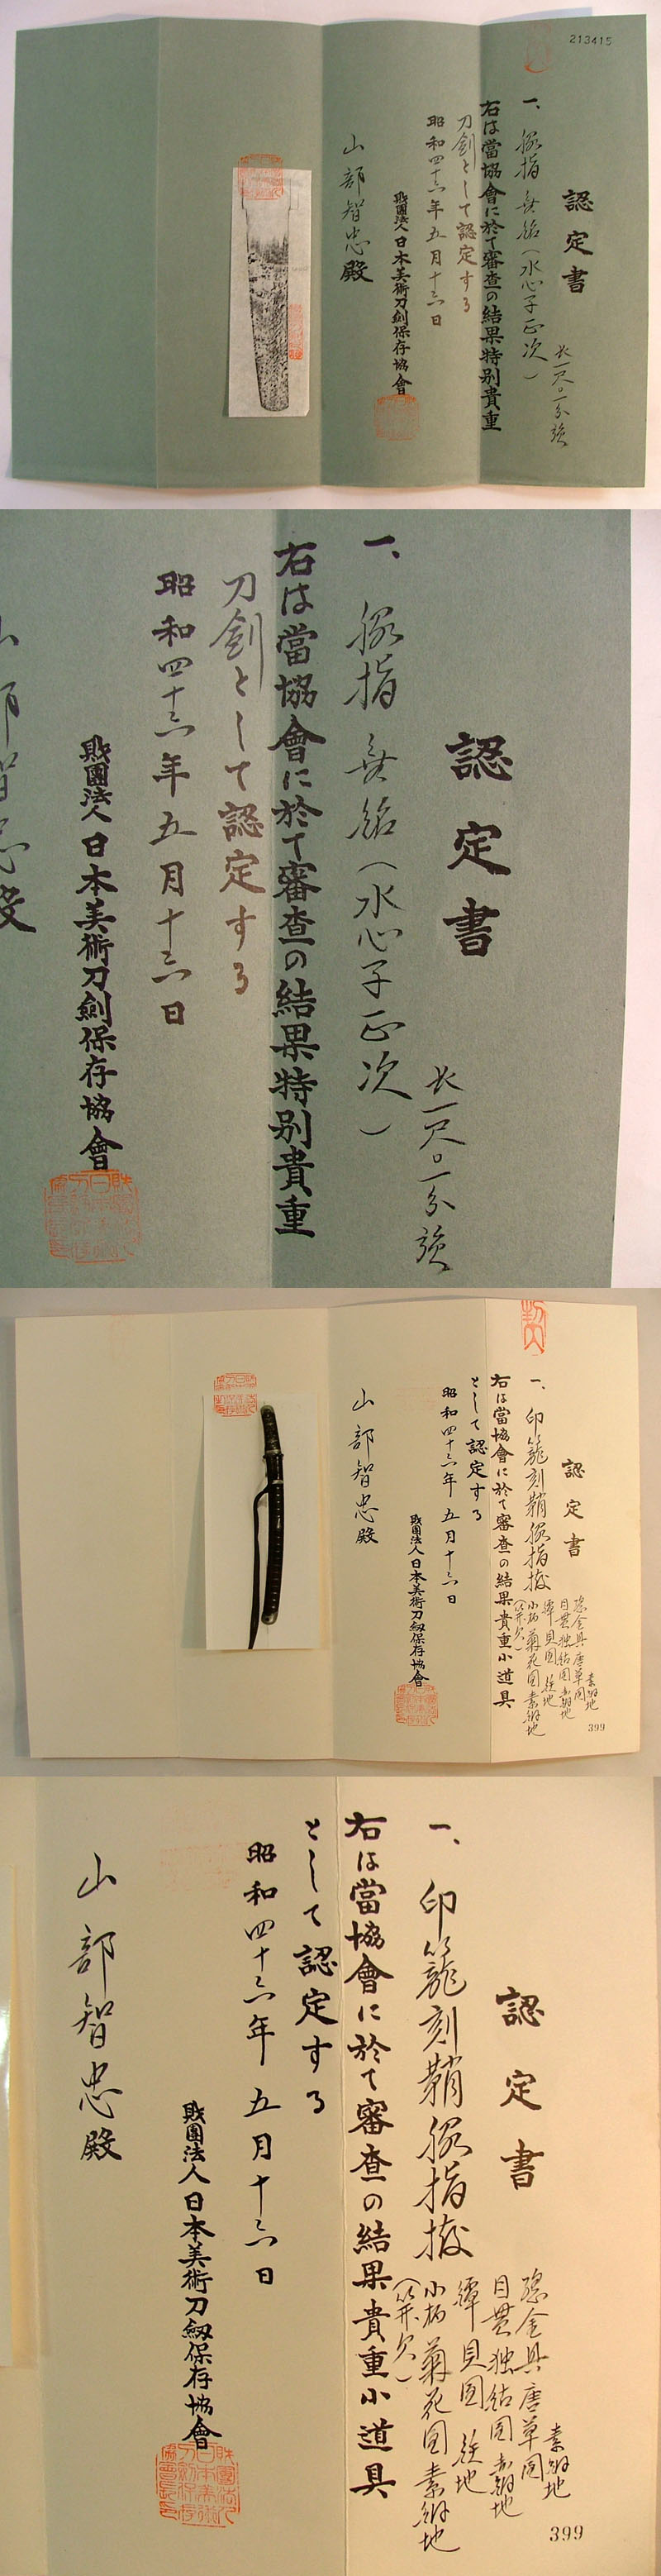 213415
認定書
一、脇指 無銘(水心子正次)
長一尺〇一分強
右は當協會に於て審査の結果特別貴重
刀劍として認定する
昭和四十三年五月十三日
財團法人日本美術刀劍保存協會
山部智忠殿
認定書
長一尺〇一分強
一、脇指 無銘(水心子正次)
右は當協會に於て審査の結果特別貴重
刀劍として認定する
昭和四十三年五月十三日
財團法人日本美術刀劍保存協會
認定書
一、印籠刻鞘脇指拵
總金具唐草図 素銅地
目貫独鈷図 赤銅地
鐔貝図 鉄地
小柄菊花図素銅地
(笄欠)
右は當協會に於て審査の結果貴重小道具
として認定する
昭和四十三年五月十三日
財團法人日本美術刀劔保存協會
山部智忠殿
399
認定書
總金具唐草図 素銅地
目貫独鈷図 赤銅地
鐔貝図 鉄地
小柄菊花図素銅地
(笄欠)
一、印籠刻鞘脇指拵
右は當協會に於て審査の結果貴重小道具
として認定する
昭和四十三年五月十三日
財團法人日本美術刀劔保存協會
山部智忠殿
399